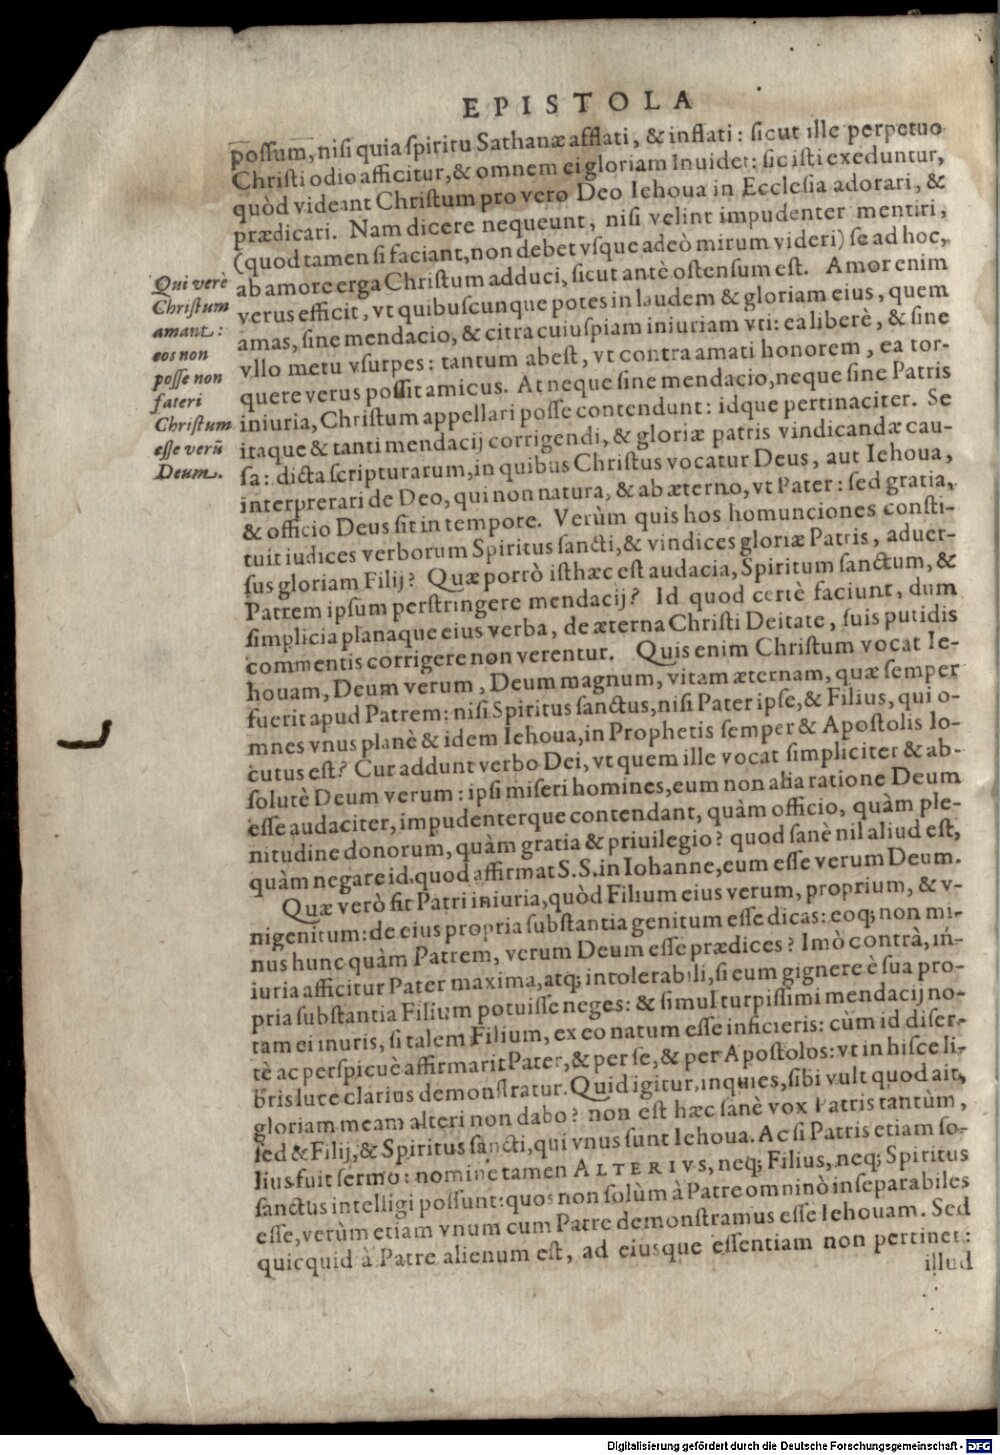 EPISTOLA
possum, nisi quia spiritu Sathanæ afflati, & inflati: sicut ille perpetuo
Christi odio afficitur, & omnem ei gloriam Inuidet: sic isti exeduntur,
quòd videant Christum pro vero Deo Iehoua in Ecclesia adorari, &
prædicari. Nam dicere nequeunt, nisi velint impudenter mentiri,
(quod tamen si faciant, non debet vsque adeò mirum videri) se ad hoc,
ab amore erga Christum adduci, sicut antè ostensum est. Amor enim
verus efficit, vt quibuscunque potes in laudem & gloriam eius, quem
amas, sine mendacio, & citra cuiuspiam iniuriam vti: ea liberè, & sine
vllo metu vsurpes: tantum abest, vt contra amati honorem, ea tor-
quere verus possit amicus. At neque sine mendacio, neque sine Patris
iniuria, Christum appellari posse contendunt: idque pertinaciter. Se
itaque & tanti mendacij corrigendi, & gloriæ patris vindicandæ cau-
sa: dicta scripturarum, in quibus Christus vocatur Deus, aut Iehoua,
interprerari de Deo, qui non natura, & ab æterno, vt Pater: sed gratia,
& officio Deus sit in tempore. Verùm quis hos homunciones consti-
tuit iudices verborum Spiritus sancti, & vindices gloriæ Patris, aduer-
sus gloriam Filij? Quæ porrò isthæc est audacia, Spiritum sanctum, &
Patrem ipsum perstringere mendacij? Id quod certè faciunt, dum
simplicia planaque eius verba, de æterna Christi Deitate, suis putidis
commentis corrigere non verentur. Quis enim Christum vocat Ie-
houam, Deum verum, Deum magnum, vitam æternam, quæ semper
fuerit apud Patrem: nisi Spiritus sanctus, nisi Pater ipse, & Filius, qui o-
mnes vnus planè & idem Iehoua, in Prophetis semper & Apostolis lo-
cutus est? Cur addunt verbo Dei, vt quem ille vocat simpliciter & ab-
solutè Deum verum: ipsi miseri homines, eum non alia ratione Deum
esse audaciter, impudenterque contendant, quàm officio, quàm ple-
nitudine donorum, quàm gratia & priuilegio? quod sanè nil aliud est,
quàm negare id quod affirmat S.S. in Iohanne, eum esse verum Deum.
Quæ verò fit Patri iniuria, quòd Filium eius verum, proprium, & v-
nigenitum: de eius propria substantia genitum esse dicas: eoq; non mi-
nus hunc quàm Patrem, verum Deum esse prædices? Imò contrà, in-
iuria afficitur Pater maxima, atq; intolerabili, si eum gignere è sua pro-
pria substantia Filium potuisse neges: & simul turpissimi mendacij no-
tam ei inuris, si talem Filium, ex eo natum esse inficieris: cùm id diser-
tè ac perspicuè affirmarit Pater, & per se, & per Apostolos: vt in hisce li-
bris luce clarius demonstratur. Quid igitur, inquies, sibi vult quod ait,
gloriam meam alteri non dabo? non est hæc sanè vox Patris tantùm,
sed & Filij, & Spiritus sancti, qui vnus sunt Iehoua. Ac si Patris etiam so-
lius fuit sermo: nomine tamen ALTERIVS, neq; Filius, neq; Spiritus
sanctus intelligi possunt: quos non solùm à Patre omninò inseparabiles
esse, verùm etiam vnum cum Patre demonstramus esse Iehouam. Sed
quicquid à Patre alienum est, ad eiusque essentiam non pertinet:
illud
Qui verè
Christum
amant:
eos non
posse non
fateri
Christum
esse verũ
Deum.
Digitalisierung gefördert durch die Deutsche Forschungsgemeinschaft - DFG